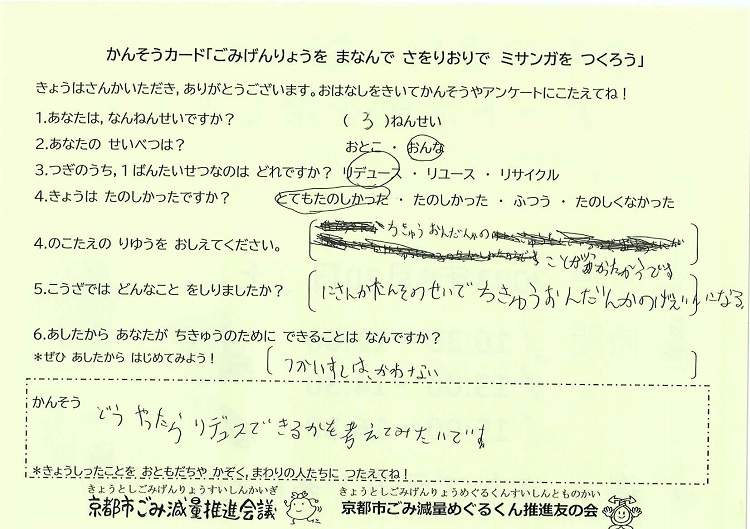 かんそうカード「ごみげんりょうを まなんで さをりおりで ミサンガを つくろう」
きょうはさんかいただき,ありがとうございます。おはなしをきいてかんそうやアンケートにこたえてね!
1.あなたは,なんねんせいですか? (3)ねんせい
2.あなたの せいべつは? おとこ ・ おんな
3.つぎのうち,1ばんたいせつなのは どれですか? リデュース ・ リユース ・ リサイクル
4.きょうは たのしかったですか? とてもたのしかった ・ たのしかった ・ ふつう ・ たのしくなかった
ちきゅうおんだんかの
4.のこたえの りゆうを おしえてください。
ことが わかたからです
5.こうざでは どんなこと をしりましたか? にさんかたんそのせいでちきゅうおんだんかのげんいんになる
6.あしたから あなたが ちきゅうのために できることは なんですか?
*ぜひ あしたから はじめてみよう! つかいすしは、かわない
かんそう
どうやったらリデュスできるかを考えてみたいです
*きょうしったことを おともだちや かぞく,まわりの人たちに つたえてね!
きょうとしごみげんりょうすいしんかいぎ きょうとしごみげんりょうめぐるくんすいしんとものかい
京都市ごみ減量推進会議 京都市ごみ減量めぐるくん推進友の会